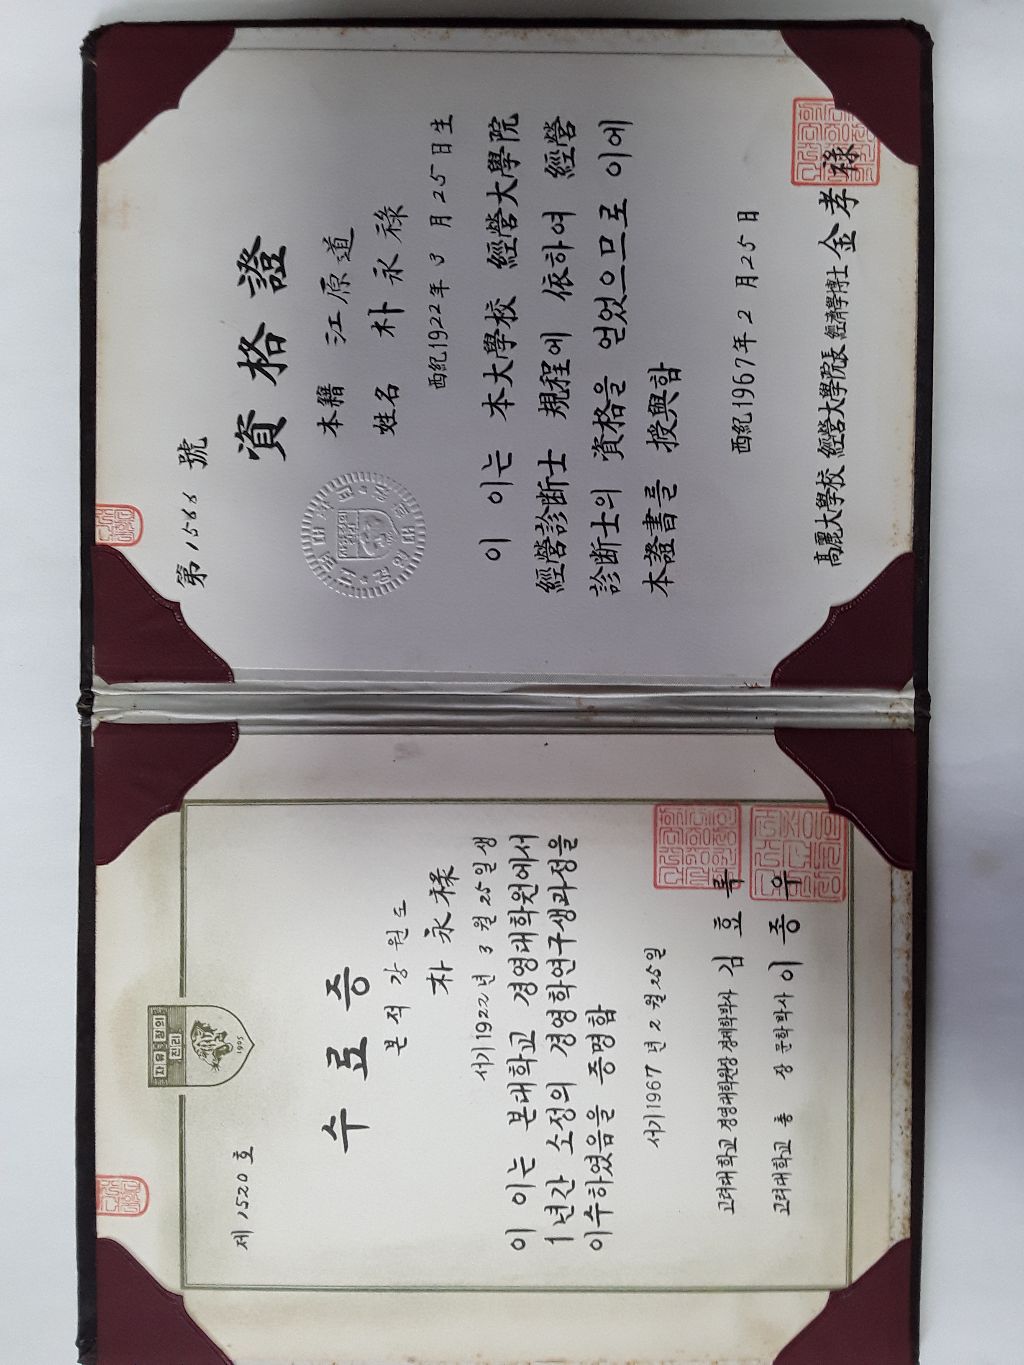 제 1520 호
자유 정의
진리
1905
수료증
본적 강원도
朴永祿
서기 1922년 3월 25일생
이 이는 본대학교 경영대학원에서
1년간 소정의 경영학연구생과정을
이수하였음을 증명함
서기 1967년 2월 25일
고려대학교 경영대학원장 경제학박사 김효록
고려대학교 총장 문학박사 이종우
第 1566 號
資格證
本籍 江原道
姓名 朴永祿
西紀 1922年 3月 25日生
이 이는 本大學校 經營大學院
經營診断士 規程에 依하여 經營
診断士의 資格을 얻었으므로 이에
本證書를 授與함
西紀 1967年 2月 25日
高麗大學校 經營大學院長 經濟學博士 金孝祿